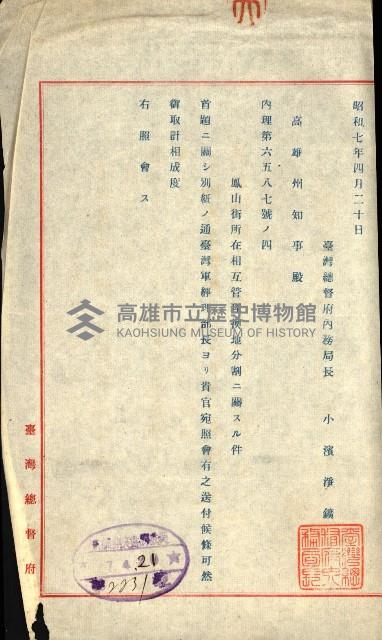 昭和七年四月二十日
臺灣總督府內務局長　小濱淨鑛
高雄州知事殿
內理第六五八七號ノ四
鳳山街所在相互管理敷地分割ニ關スル件
首題ニ關シ別紙ノ通臺灣軍經理部長ヨリ貴官宛照會有之送付候條可然
御取計相成度
右照會ス
臺灣總督府
高雄市立歷史博物館
KAOHSIUNG MUSEUM OF HISTORY
7.4.21